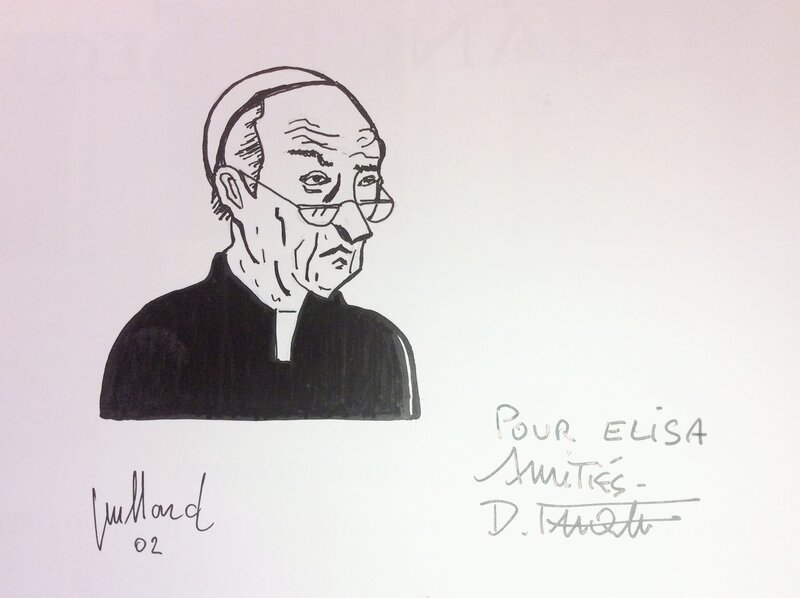 Juillard
02
POUR ELISA
AMITIÉS.
D.